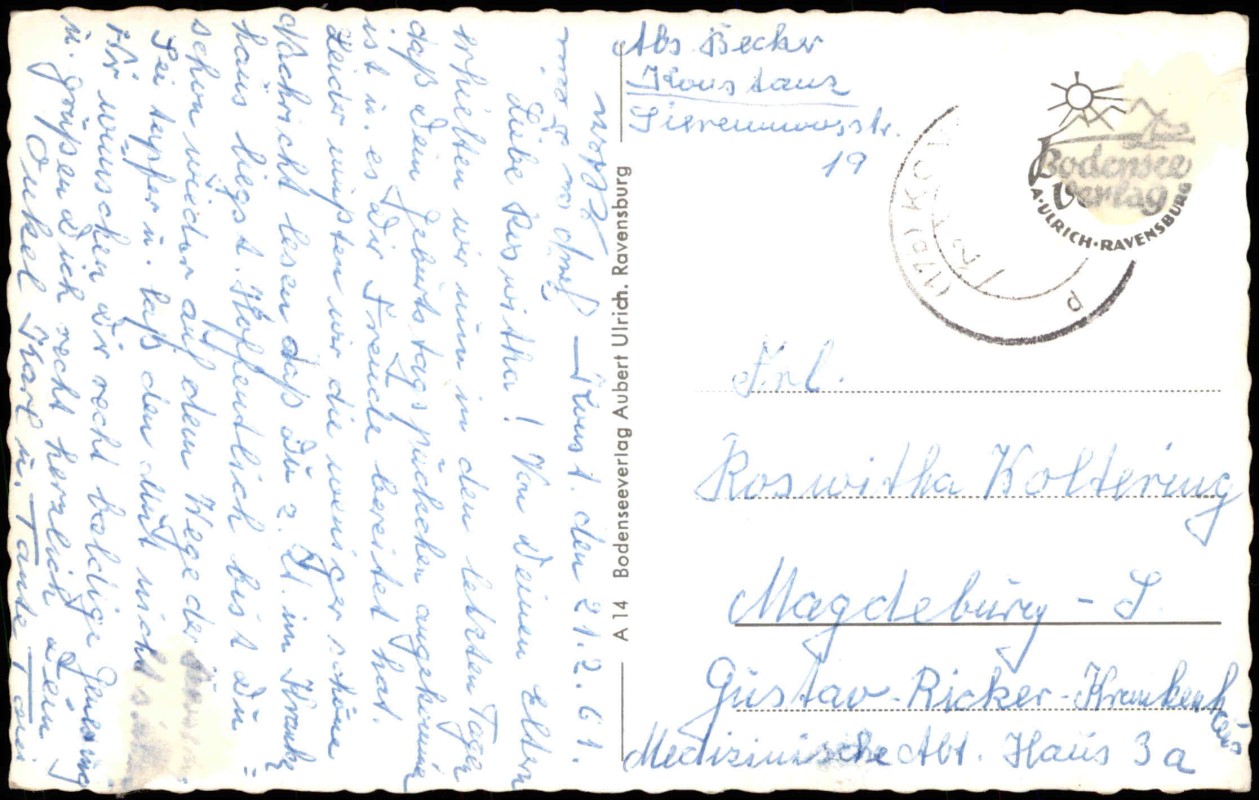 Abs Becker
Konstanz
Sierenmoosstr.
19
Bodensee
Verlag
A·ULRICH·RAVENSBURG
(17b) KON
Frl.
Roswitha Koltering
Magdeburg - S.
Gustav-Ricker-Krankenhaus
Medizinische Abt. Haus 3a
A 14 Bodenseeverlag Aubert Ulrich, Ravensburg
Konst. den 21.2.61.
Liebe Roswitha! Von Deinen Eltern
erhielten wir nun in den letzten Tagen
daß Dein Geburtstagspäckchen angekommen
ist u. es Dir Freude bereitet hat.
Leider mußten wir die weniger schöne
Nachricht lesen daß Du z. Zt. im Kranken
haus liegst. Hoffentlich bist Du
schon wieder auf dem Wege der
Sei tapfer u. laß den Mut nicht
Wir wünschen Dir recht baldige Genesung
u. grüßen Dich recht herzlich Dein
Onkel Karl u. Tante Toni